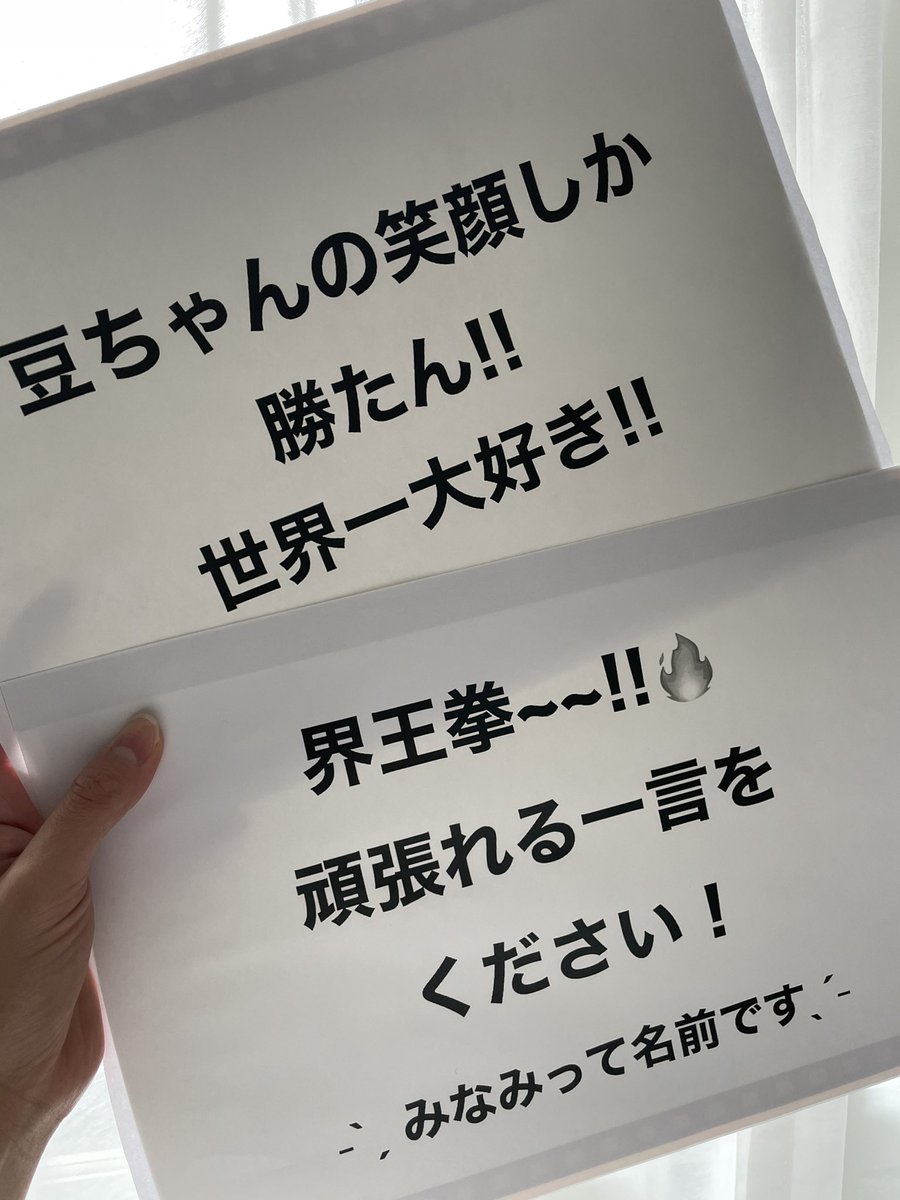 豆ちゃんの笑顔しか
勝たん!!
世界一大好き!!
界王拳~~!!🔥
頑張れる一言を
ください！
-ˋˏ みなみって名前です ˎˊ-